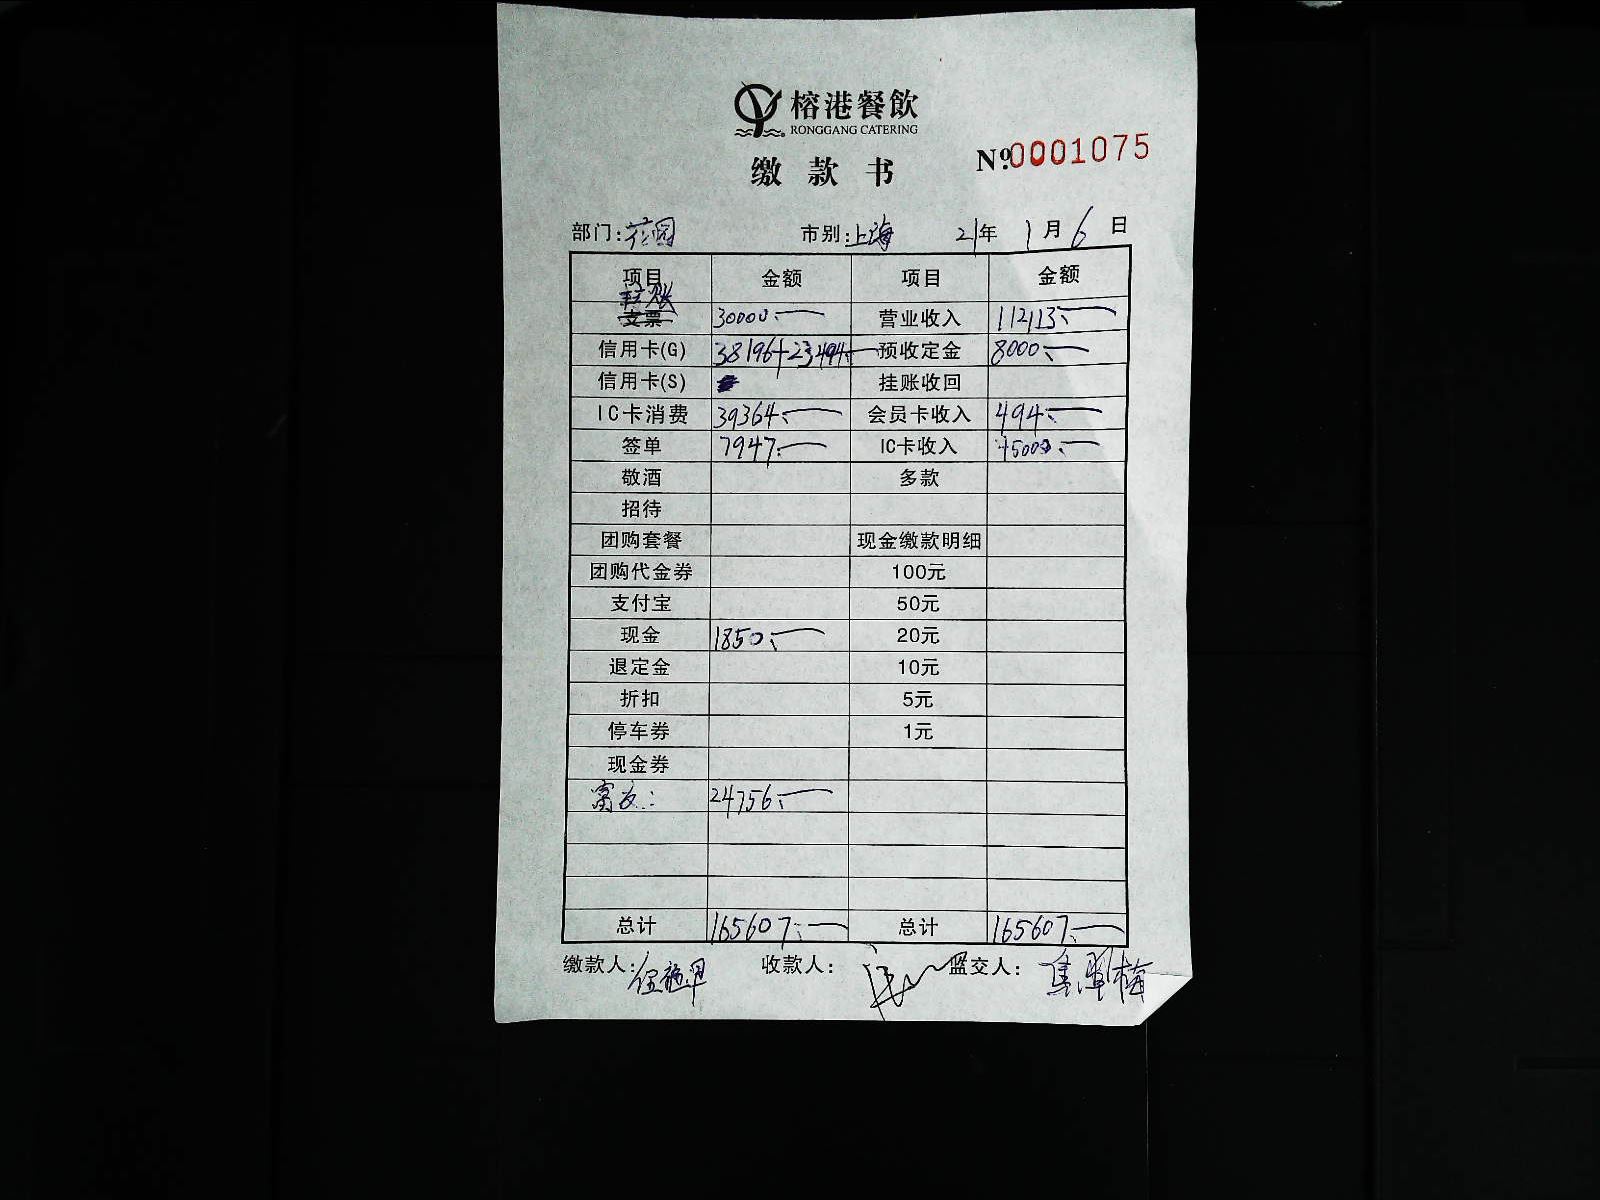 榕港餐飲
RONGGANG CATERING
缴款书
№0001075
部门:花园 市别:上海 21年 1月 6日
项目 金额 项目 金额
转账 支票 30000.— 营业收入 112113.—
信用卡(G) 38196+23494.— 预收定金 8000.—
信用卡(S) 挂账收回
IC卡消费 39364.— 会员卡收入 494.—
签单 7947.— IC卡收入 45000.—
敬酒 多款
招待
团购套餐 现金缴款明细
团购代金券 100元
支付宝 50元
现金 1850.— 20元
退定金 10元
折扣 5元
停车券 1元
现金券
24756.—
总计 165607.— 总计 165607.—
缴款人: 收款人: 监交人: